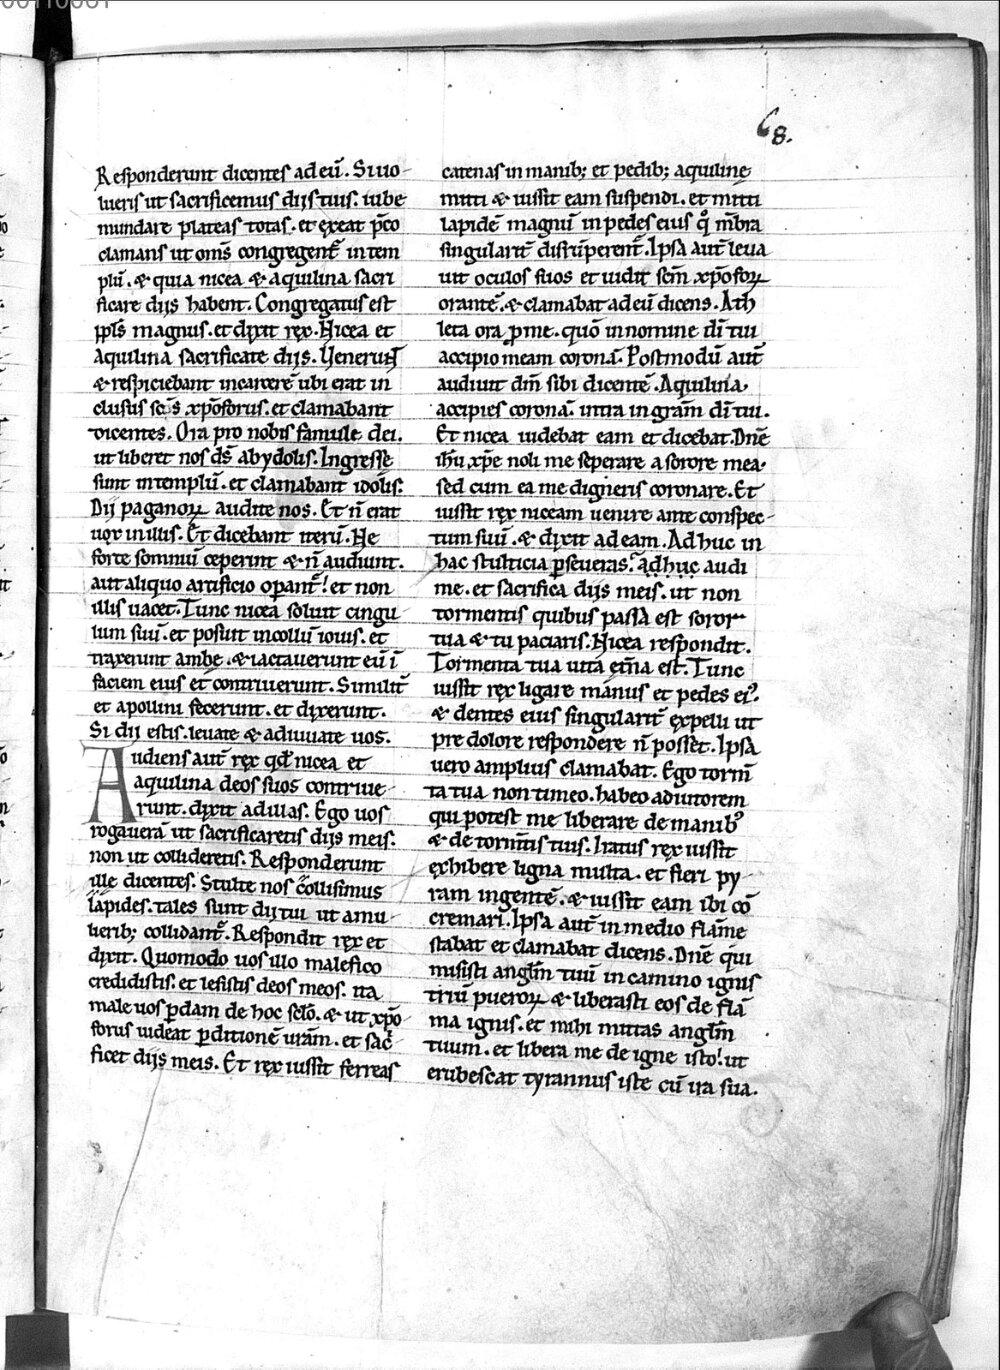 68.
Responderunt dicentes ad eū. Si uo-
lueris ut sacrificemus dijs tuis. iube
mundare plateas totas. et exeat p̄co
clamans ut om̄s congregent᷑ in tem
plū. & quia nicea & aquilina sacri
ficare dijs habent. Congregatus est
ppl̄s magnus. et dixit rex. Nicea et
Aquilina sacrificate dijs. Venerun̄t
& respiciebant in carcerē ubi erat in
clusus sc̄s xp̄oforus. et clamabant
dicentes. Ora pro nobis famule dei.
ut liberet nos ds̄ ab ydolis. Ingresse
sunt in templū. et clamabant idolis.
Dij paganoꝝ audite nos. Et n̄ erat
uox in illis. Et dicebant iterū. Ne
forte somniū ceperint & n̄ audiunt.
aut aliquo artificio opant᷑! et non
illis uacet. Tunc nicea soluit cingu
lum suū. et posuit in collū iouis. et
traxerunt ambe. & iactauerunt eū ī
faciem eius et contriuerunt. Similit᷑
et apollini fecerunt. et dixerunt.
Si dii estis. leuate & adiuuate uos.
Audiens aut̄ rex qd̄ nicea et
aquilina deos suos contriue-
runt. dixit ad illas. Ego uos
rogauerā ut sacrificaretis dijs meis.
non ut collideretis. Responderunt
ille dicentes. Stulte nos collisimus
lapides. tales sunt dij tui ut a mu-
lierib; collidant᷑. Respondit rex et
dixit. Quomodo uos illo malefico
credidistis. et lesistis deos meos. ita
male uos ꝑdam de hoc sclō. & ut xp̄o-
forus uideat ꝑditionē urām. et sac̄-
ficet dijs meis. Et rex iussit ferreas
catenas in manib; et pedib; aquiline
mitti & iussit eam suspendi. et mitti
lapidē magnū in pedes eius q̄ mēbra
singularit᷑ disrūperent᷑. Ipsa aut̄ leua
uit oculos suos et uidit scm̄ xp̄oforꝝ
orantē. & clamabat ad eū dicens. Ath
leta ora ꝓ me. quō in nomine dī tui
accipio meam coronā. Postmodū aut̄
audiuit dn̄m sibi dicentē. Aquilina.
accipies coronā. intra in grām dī tui.
Et nicea uidebat eam et dicebat. Dn̄e
ih̄u xp̄e noli me seperare a sorore mea.
sed cum ea me digneris coronare. Et
iussit rex niceam uenire ante conspec-
tum suū. & dixit ad eam. Adhuc in
hac stulticia ꝑseueras. adhuc audi
me. et sacrifica dijs meis. ut non
tormentis quibus passa est soror
tua & tu paciaris. Nicea respondit.
Tormenta tua uita et̄na est. Tunc
iussit rex ligare manus et pedes ei᷒.
& dentes eius singularit᷑ expelli ut
pre dolore respondere n̄ posset. Ipsa
uero amplius clamabat. Ego torm̄
ta tua non timeo. habeo adiutorem
qui potest me liberare de manib᷒
& de torm̄tis tuis. Iratus rex iussit
exhibere ligna multa. et fieri py-
ram ingentē. & iussit eam ibi cō
cremari. Ipsa aut̄ in medio flāme
stabat et clamabat dicens. Dn̄e qui
misisti angl̄m tuū in camino ignis
triū pueroꝝ & liberasti eos de flā
ma ignis. et mihi mittas angl̄m
tuum. et libera me de igne isto! ut
erubescat tyrannus iste cū ira sua.